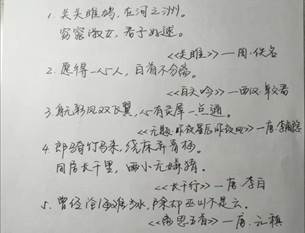 1. 关关雎鸠，在河之洲。
窈窕淑女，君子好逑。
<<关雎>>—周·佚名
2. 愿得一心人，白首不分离。
<<白头吟>>—西汉·卓文君
3. 身无彩凤双飞翼，心有灵犀一点通。
<<无题·昨夜星辰昨夜风>>—唐·李商隐
4. 郎骑竹马来，绕床弄青梅。
同居长干里，两小无嫌猜。
<<长干行>>—唐·李白
5. 曾经沧海难为水，除却巫山不是云。
<<离思五首>>—唐·元稹